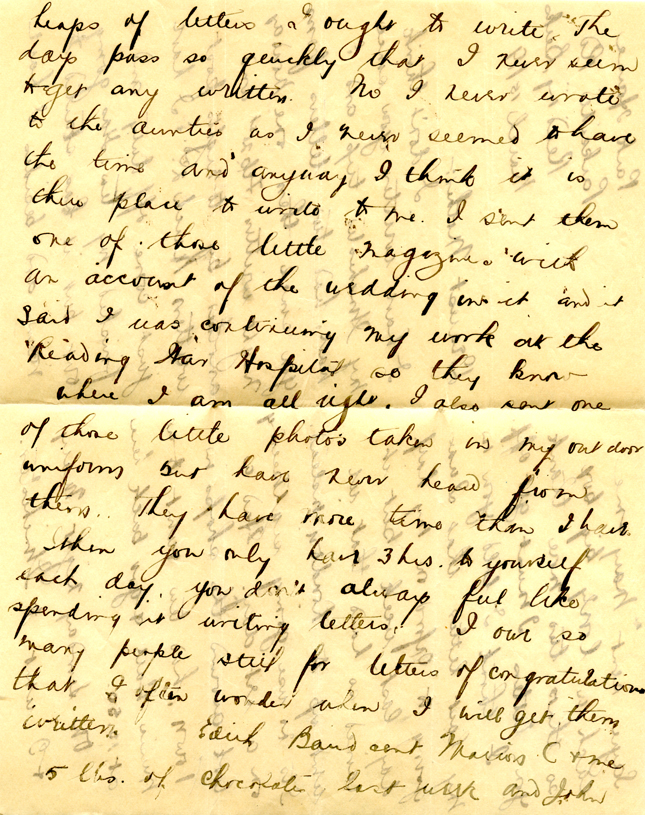 heaps of letters I ought to write. The
days pass so quickly that I never seem
to get any written. No I never wrote
to the aunties as I never seemed to have
the time and anyway I think it is
their place to write to me. I sent them
one of those little magazines with
an account of the wedding in it and it
said I was continuing my work at the
Reading War Hospital so they know
where I am all right. I also sent one
of those little photos taken in my outdoor
uniform but have never heard from
them. They have more time than I have
When you only have 3 hrs. to yourself
each day, you don't always feel like
spending it writing letters. I owe so
many people still for letters of congratulations
that I often wonder when I will get them
written. Edith Baud sent Marion C & me
5 lbs. of chocolates last week and John